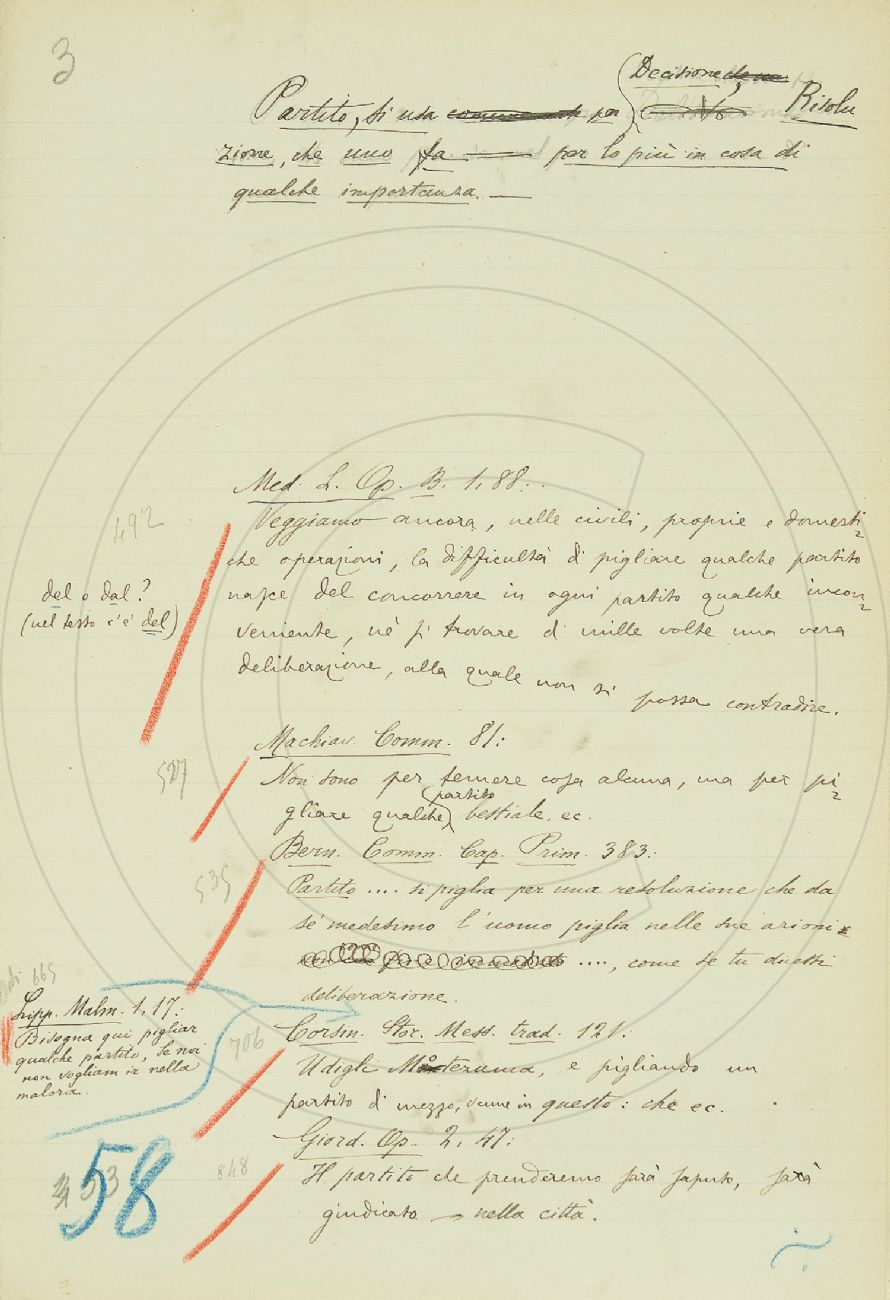 3
Decisione,
Partito, si usa per Risolu
zione, che uno fa per lo più in cosa di
qualche importanza. —
Med. L. Op. B. 1, 88:
492
Veggiamo ancora, nelle civili, proprie e domesti=
che operazioni, la difficultà di pigliare qualche partito
del o dal?
nasce del concorrere in ogni partito qualche incon=
(nel testo c'è del)
veniente, nè si trovare di mille volte una vera
deliberazione, alla quale non si possa contradire.
Machiav. Comm. 81:
527
Non sono per temere cosa alcuna, ma per pi=
partito
gliare qualche bestiale, ec.
Bern. Comm. Cap. Prim. 383:
535
Partito .... si piglia per una resoluzione che da
sè medesimo l'uomo piglia nelle sue azioni
...., come se tu dicessi
deliberazione.
665
Lipp. Malm. 1, 17:
Bisogna qui pigliar
qualche partito, Se noi
non vogliam ir nella
malora.
Corsin. Stor. Mess. trad. 121:
706
Udigli Motezuma, e pigliando un
partito di mezzo, venne in questo: che ec.
Giord. Op. 2, 47:
848
Il partito che prenderemo sarà saputo, sarà
giudicato nella città.
58